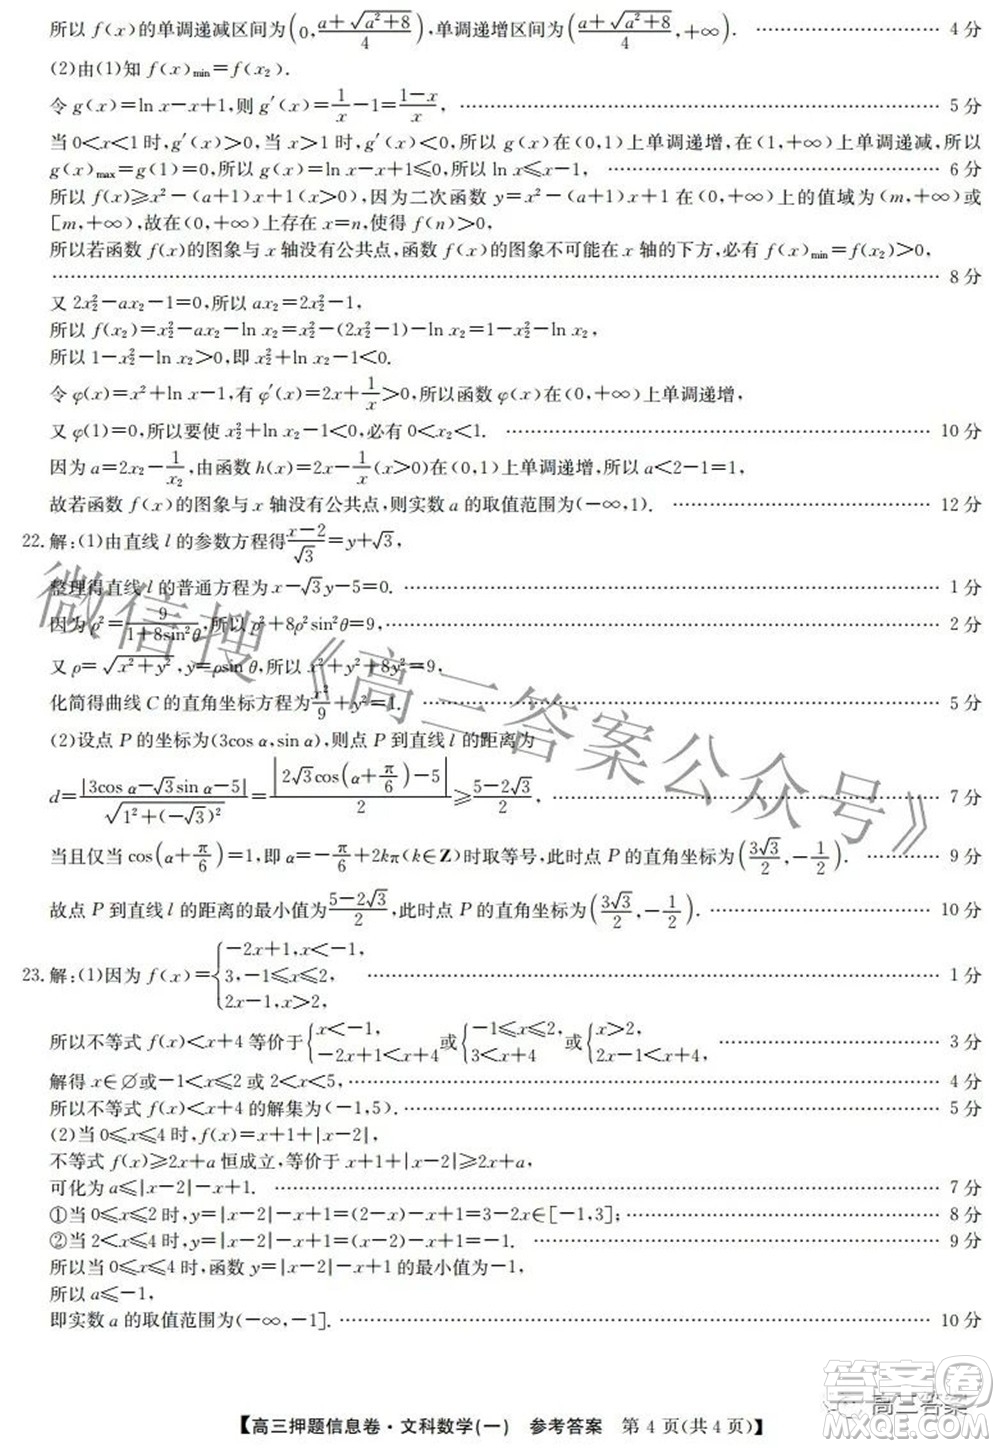 所以 f(x)的单调递减区间为(0,(a+√(a²+8))/4),单调递增区间为((a+√(a²+8))/4,+∞). …… 4 分
(2)由(1)知 f(x)min=f(x₂).
令 g(x)=ln x−x+1,则 g′(x)=1/x−1=(1−x)/x, …… 5 分
当 0<x<1 时,g′(x)>0,当 x>1 时,g′(x)<0,所以 g(x)在(0,1)上单调递增,在(1,+∞)上单调递减,所以
g(x)max=g(1)=0,所以 g(x)=ln x−x+1≤0,所以 ln x≤x−1, …… 6 分
所以 f(x)≥x²−(a+1)x+1(x>0),因为二次函数 y=x²−(a+1)x+1 在(0,+∞)上的值域为(m,+∞)或
[m,+∞),故在(0,+∞)上存在 x=n,使得 f(n)>0.
所以若函数 f(x)的图象与 x 轴没有公共点,函数 f(x)的图象不可能在 x 轴的下方,必有 f(x)min=f(x₂)>0,
…… 8 分
又 2x₂²−ax₂−1=0,所以 ax₂=2x₂²−1,
所以 f(x₂)=x₂²−ax₂−ln x₂=x₂²−(2x₂²−1)−ln x₂=1−x₂²−ln x₂,
所以 1−x₂²−ln x₂>0,即 x₂²+ln x₂−1<0.
令 φ(x)=x²+ln x−1,有 φ′(x)=2x+1/x>0,所以函数 φ(x)在(0,+∞)上单调递增,
又 φ(1)=0,所以要使 x₂²+ln x₂−1<0,必有 0<x₂<1. …… 10 分
因为 a=2x₂−1/x₂,由函数 h(x)=2x−1/x(x>0)在(0,1)上单调递增,所以 a<2−1=1,
故若函数 f(x)的图象与 x 轴没有公共点,则实数 a 的取值范围为(−∞,1). …… 12 分
22. 解:(1)由直线 l 的参数方程得(x−2)/√3=y+√3,
整理得直线 l 的普通方程为 x−√3y−5=0. …… 1 分
因为 ρ²=9/(1+8sin²θ),所以 ρ²+8ρ²sin²θ=9, …… 2 分
又 ρ=√(x²+y²),y=ρsin θ,所以 x²+y²+8y²=9,
化简得曲线 C 的直角坐标方程为x²/9+y²=1. …… 5 分
(2)设点 P 的坐标为(3cos α,sin α),则点 P 到直线 l 的距离为
d=|3cos α−√3sin α−5|/√(1²+(−√3)²)=|2√3cos(α+π/6)−5|/2≥(5−2√3)/2, …… 7 分
当且仅当 cos(α+π/6)=1,即 α=−π/6+2kπ(k∈Z)时取等号,此时点 P 的直角坐标为(3√3/2,−1/2). …… 9 分
故点 P 到直线 l 的距离的最小值为(5−2√3)/2,此时点 P 的直角坐标为(3√3/2,−1/2). …… 10 分
23. 解:(1)因为 f(x)={−2x+1,x<−1, 3,−1≤x≤2, 2x−1,x>2, …… 1 分
所以不等式 f(x)<x+4 等价于{x<−1, −2x+1<x+4 或{−1≤x≤2, 3<x+4 或{x>2, 2x−1<x+4, …… 3 分
解得 x∈∅或−1<x≤2 或 2<x<5, …… 4 分
所以不等式 f(x)<x+4 的解集为(−1,5). …… 5 分
(2)当 0≤x≤4 时,f(x)=x+1+|x−2|,
不等式 f(x)≥2x+a 恒成立,等价于 x+1+|x−2|≥2x+a,
可化为 a≤|x−2|−x+1. …… 7 分
①当 0≤x≤2 时,y=|x−2|−x+1=(2−x)−x+1=3−2x∈[−1,3]; …… 8 分
②当 2<x≤4 时,y=|x−2|−x+1=x−2−x+1=−1. …… 9 分
所以当 0≤x≤4 时,函数 y=|x−2|−x+1 的最小值为−1,
所以 a≤−1,
即实数 a 的取值范围为(−∞,−1]. …… 10 分
微信搜《高三答案公众号》
答案圈
高三答案
【高三押题信息卷·文科数学(一) 参考答案 第 4 页(共 4 页)】